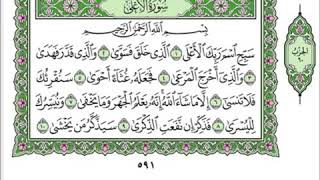 سُورَةُ الأَعْلَى
بِسْمِ ٱللَّهِ ٱلرَّحْمَٰنِ ٱلرَّحِيمِ
سَبِّحِ ٱسْمَ رَبِّكَ ٱلْأَعْلَى ١ ٱلَّذِى خَلَقَ فَسَوَّىٰ ٢ وَٱلَّذِى قَدَّرَ فَهَدَىٰ
٣ وَٱلَّذِىٓ أَخْرَجَ ٱلْمَرْعَىٰ ٤ فَجَعَلَهُۥ غُثَآءً أَحْوَىٰ ٥ سَنُقْرِئُكَ
فَلَا تَنسَىٰٓ ٦ إِلَّا مَا شَآءَ ٱللَّهُ إِنَّهُۥ يَعْلَمُ ٱلْجَهْرَ وَمَا يَخْفَىٰ ٧ وَنُيَسِّرُكَ
لِلْيُسْرَىٰ ٨ فَذَكِّرْ إِن نَّفَعَتِ ٱلذِّكْرَىٰ ٩ سَيَذَّكَّرُ مَن يَخْشَىٰ ١٠
٥٩١